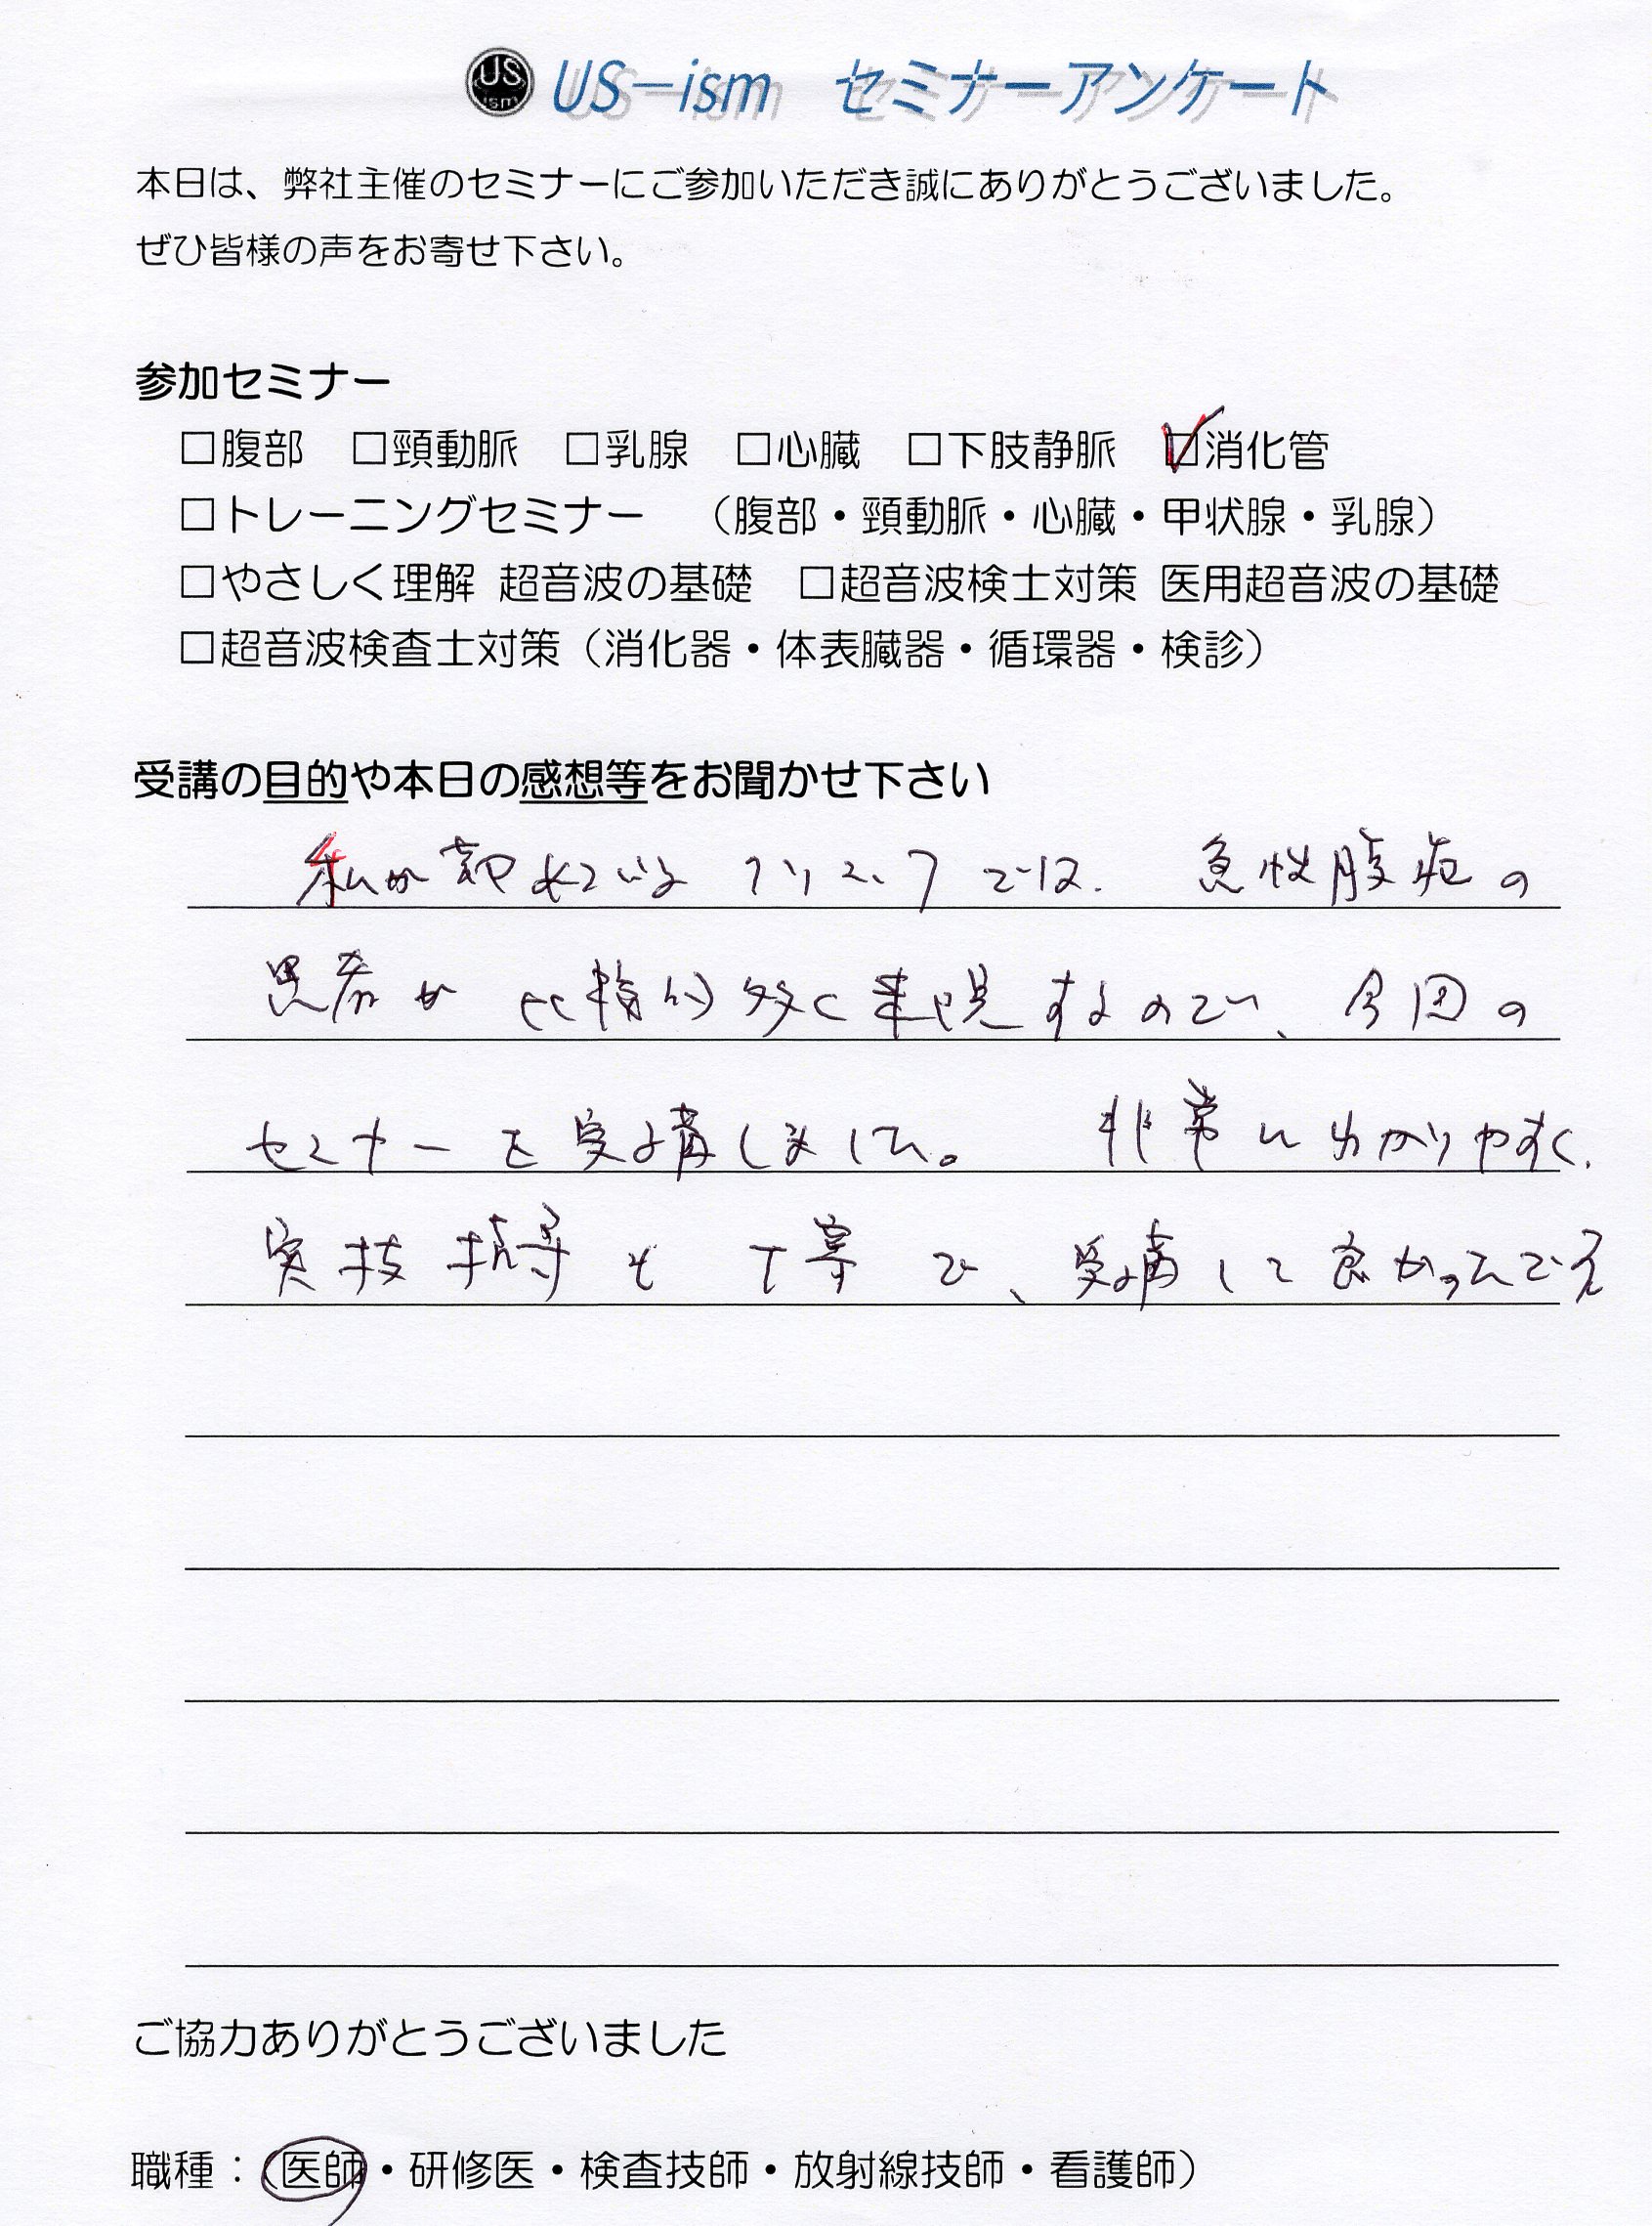 US ism US-ism セミナーアンケート
本日は、弊社主催のセミナーにご参加いただき誠にありがとうございました。
ぜひ皆様の声をお寄せ下さい。
参加セミナー
□腹部 □頸動脈 □乳腺 □心臓 □下肢静脈 ☑消化管
□トレーニングセミナー （腹部・頸動脈・心臓・甲状腺・乳腺）
□やさしく理解 超音波の基礎 □超音波検士対策 医用超音波の基礎
□超音波検査士対策（消化器・体表臓器・循環器・検診）
受講の目的や本日の感想等をお聞かせ下さい
私が勤めている クリニックでは、急性腹症の
患者が 比較的多く来院するので、今回の
セミナーを受講しました。 非常に分かりやすく、
実技指導も丁寧で、受講して良かったです
ご協力ありがとうございました
職種：（医師・研修医・検査技師・放射線技師・看護師）